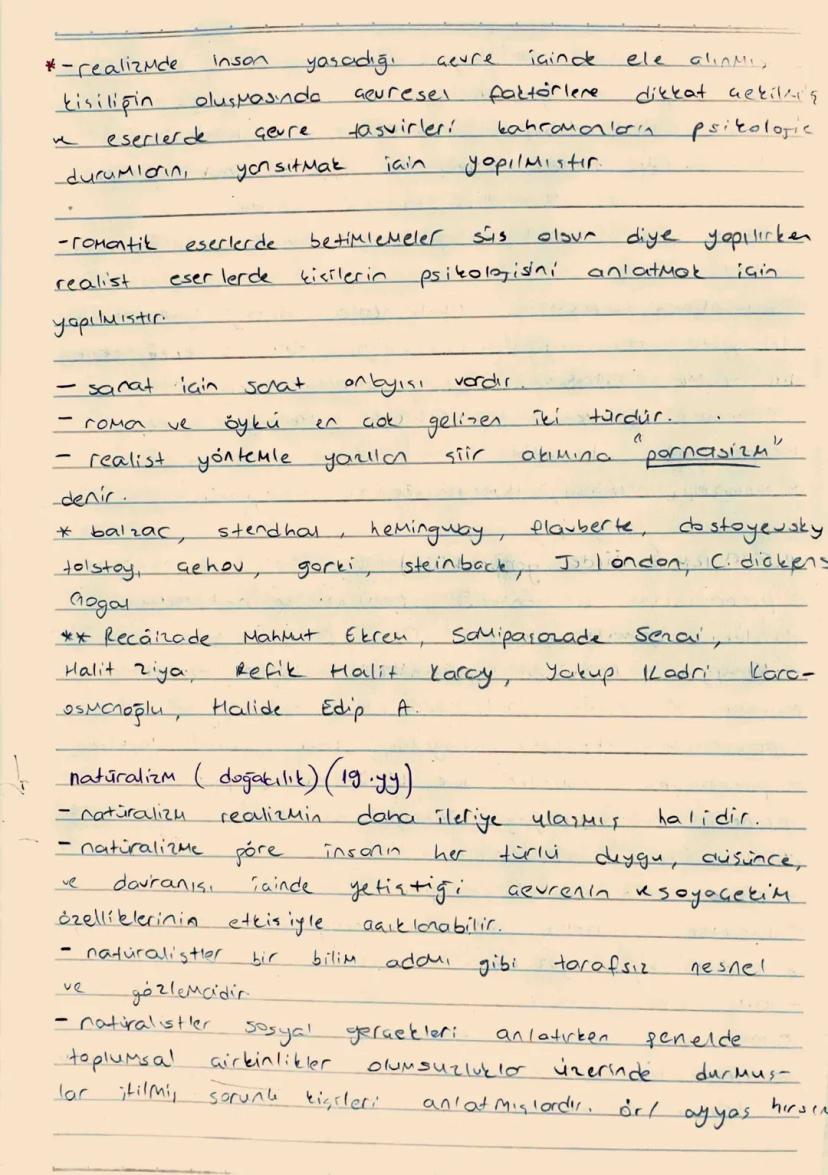 *-realizmde insan yaşadığı çevre içinde ele alınmı,
kişiliğin oluşmasında çevresel faktörlere dikkat çekilmiş
ve eserlerde çevre tasvirleri kahramanların psikolojic
durumların, yansıtmak için yapılmıştır.
-romantik eserlerde betimlemeler süs olsun diye yapılırken
realist eserlerde kişilerin psikolojisini anlatmak için
yapılmıştır.
- sanat için sanat anlayışı vardır.
- roma ve öykü en çok gelişen iki türdür.
- realist yöntemle yazılan şiir akımına "parnasizm"
denir.
* balzac, stendhal, hemingway, flauberte, dostoyevsky
tolstoy, çehov, gorki, steinback, J. london, C. dickens
Gogol
** Recâizade Mahmut Ekrem, Samipaşazade Sezai,
Halit Ziya, Refik Halit Karay, Yakup Kadri Kara-
osmanoğlu, Halide Edip A.
natüralizm (doğacılık) (19.yy)
- natüralizm realizmin daha ileriye ulaşmış halidir.
- natüralizme göre insanın her türlü duygu, düşünce,
ve davranışı içinde yetiştiği çevrenin ve soyaçekim
özelliklerinin etkisiyle açıklanabilir.
- natüralistler bir bilim adamı gibi tarafsız nesnel
ve gözlemcidir.
- natüralistler sosyal gerçekleri anlatırken genelde
toplumsal çirkinlikler olumsuzluklar üzerinde durmuş-
lar itilmiş sorunlu kişileri anlatmışlardır. ör/ ayyaş